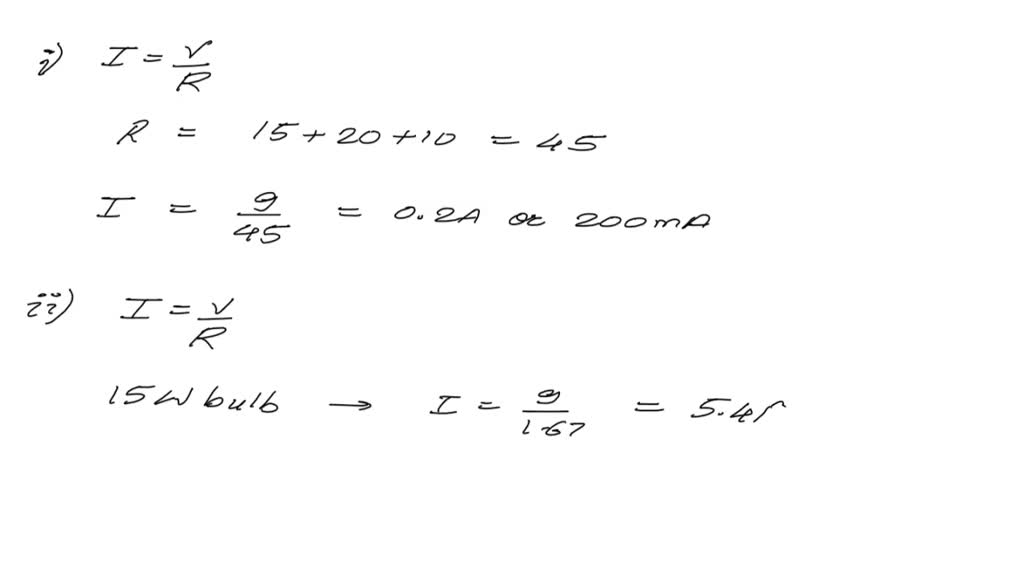 i) I = V/R
R = 15 + 20 + 10 = 45
I = 9/45 = 0.2A or 200mA
ii) I = V/R
15W bulb → I = 9/1.67 = 5.4